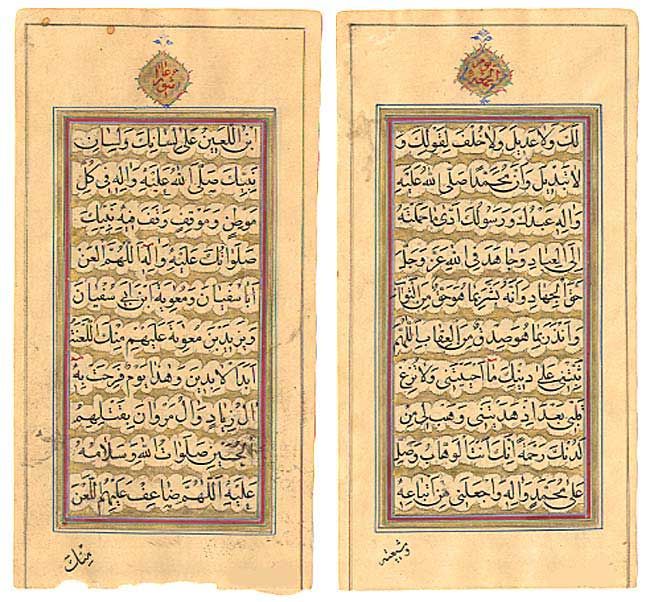 يوم الجمعة
لَكَ وَلا عَديلَ وَلا خُلْفَ لِقَوْلِكَ وَ
لا تَبْديلَ وَاَنَّ مُحَمَّدًا صَلَّى اللهُ عَلَيْهِ
وَالِهِ عَبْدُكَ وَرَسُولُكَ اَدّى ما حَمَّلْتَهُ
اِلَى الْعِبادِ وَجاهَدَ فِي اللهِ عَزَّ وَجَلَّ
حَقَّ الْجِهادِ وَاَنَّهُ بَشَّرَ بِما هُوَ حَقٌّ مِنَ الثَّوابِ
وَاَنْذَرَ بِما هُوَ صِدْقٌ مِنَ الْعِقابِ اَللّهُمَّ
ثَبِّتْني عَلى دينِكَ ما اَحْيَيْتَني وَلا تُزِغْ
قَلْبي بَعْدَ اِذْ هَدَيْتَني وَهَبْ لي مِنْ
لَدُنْكَ رَحْمَةً اِنَّكَ اَنْتَ الْوَهّابُ وَصَلِّ
عَلى مُحَمَّدٍ وَالِهِ وَاجْعَلْني مِنْ اَتْباعِهِ
وشيعته
ابْنُ اللَّعينِ عَلى لِسانِكَ وَلِسانِ
نَبِيِّكَ صَلَّى اللهُ عَلَيْهِ وَالِهِ في كُلِّ
مَوْطِنٍ وَمَوْقِفٍ وَقَفَ فيهِ نَبِيُّكَ
صَلَواتُكَ عَلَيْهِ وَالِهِ اَللّهُمَّ الْعَنْ
اَبا سُفْيانَ وَمُعوِيَةَ ابْنَ اَبي سُفْيانَ
وَيَزيدَ بْنَ مُعوِيَةَ عَلَيْهِمْ مِنْكَ اللَّعْنَةُ
اَبَدَ الابِدينَ وَهذا يَوْمٌ فَرِحَتْ بِهِ
الُ زِيادٍ وَالُ مَرْوانَ بِقَتْلِهِمُ
الْحُسَيْنَ صَلَواتُ اللهِ وَسَلامُهُ
عَلَيْهِ اَللّهُمَّ ضاعِفْ عَلَيْهِمُ اللَّعْنَ
مِنْكَ